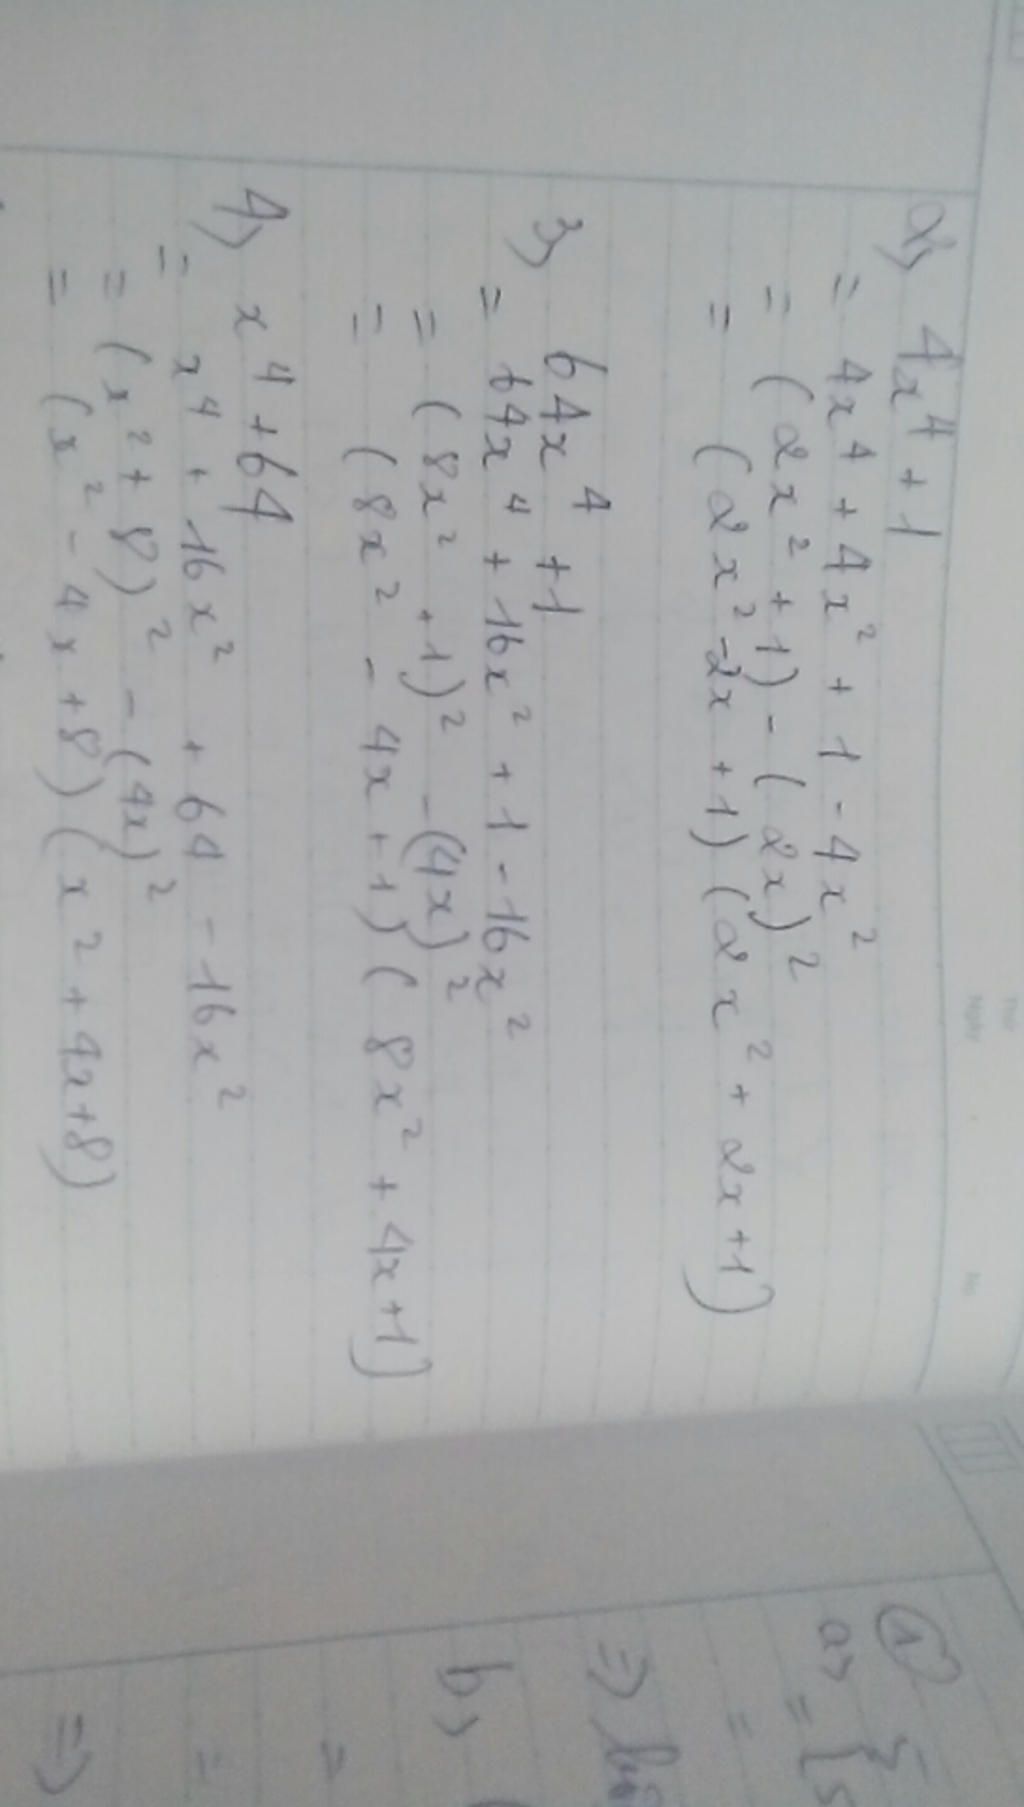 2) 4x⁴ + 1
= 4x⁴ + 4x² + 1 - 4x²
= (2x² + 1) - (2x)²
= (2x² - 2x + 1) (2x² + 2x + 1)
3) 64x⁴ + 1
= 64x⁴ + 16x² + 1 - 16x²
= (8x² + 1)² - (4x)²
= (8x² - 4x + 1) (8x² + 4x + 1)
4) x⁴ + 64
= x⁴ + 16x² + 64 - 16x²
= (x² + 8)² - (4x)²
= (x² - 4x + 8) (x² + 4x + 8)
1
a)
=
=
=>
b)
=
=
=>